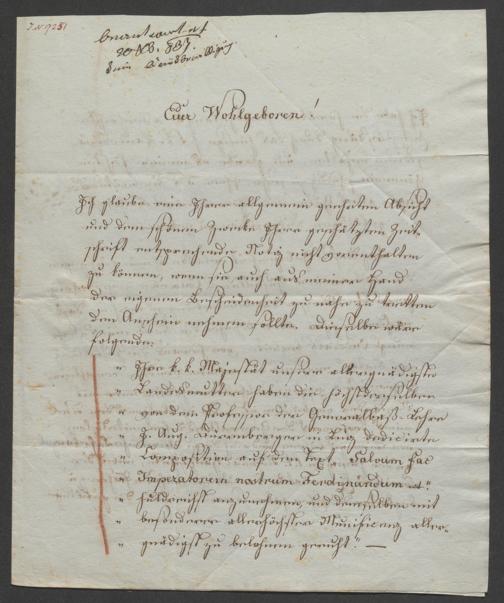 I.N. 9251
beantwortet
30 Xb. 837.
Eur Wohlgeboren!
Ich glaube eine Ihrer allgemein geehrten Absicht
und dem schönen Zwecke Ihrer geschätzten Zeit-
schrift entsprechende Notiz nicht vorenthalten
zu können, wenn sie auch aus meiner Hand
der eigenen Bescheidenheit zu nahe zu tretten
den Anschein nehmen sollte. Dieselbe wäre
folgende:
" Ihre k. k. Majestät unsere allergnädigste
" Landesmutter haben die höchstderselben
" von dem Professor der Generalbaß-Lehre
" J. Aug. Dürrnberger in Linz dedicirte
" Composition auf den Text „Salvum fac
" Imperatorem nostrum Ferdinandum etc"
" huldreichst anzunehmen, und denselben mit
" besonderer allerhöchster Munificenz aller-
" gnädigst zu belohnen geruht." —